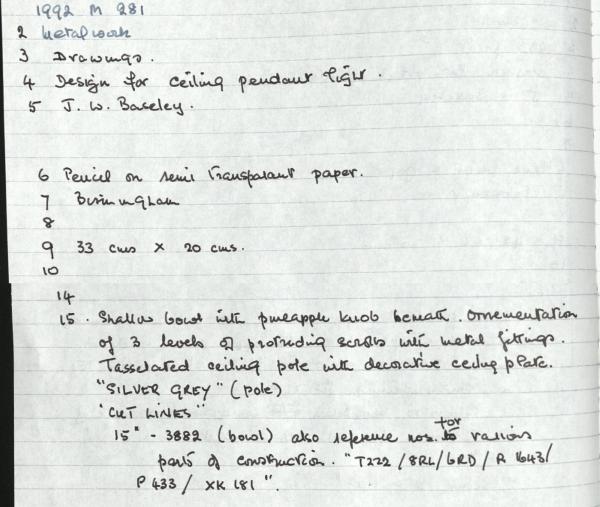 1992 M 281
2 Metalwork
3 Drawings.
4 Design for ceiling pendant light.
5 J. W. Baseley.
6 Pencil on semi transparant paper.
7 Birmingham
8
9 33 cms x 20 cms.
10
14
15. Shallow bowl with pineapple knob beneath. Ornementation
of 3 levels of protruding scrolls with metal fittings.
Tasselated ceiling pole with decorative ceiling plate.
"SILVER GREY" (pole)
"CUT LINES"
15" - 3882 (bowl) also reference nos. for various
parts of construction. "T222 / 8RL / 6RD / R 1643/
P 433 / XK 181".